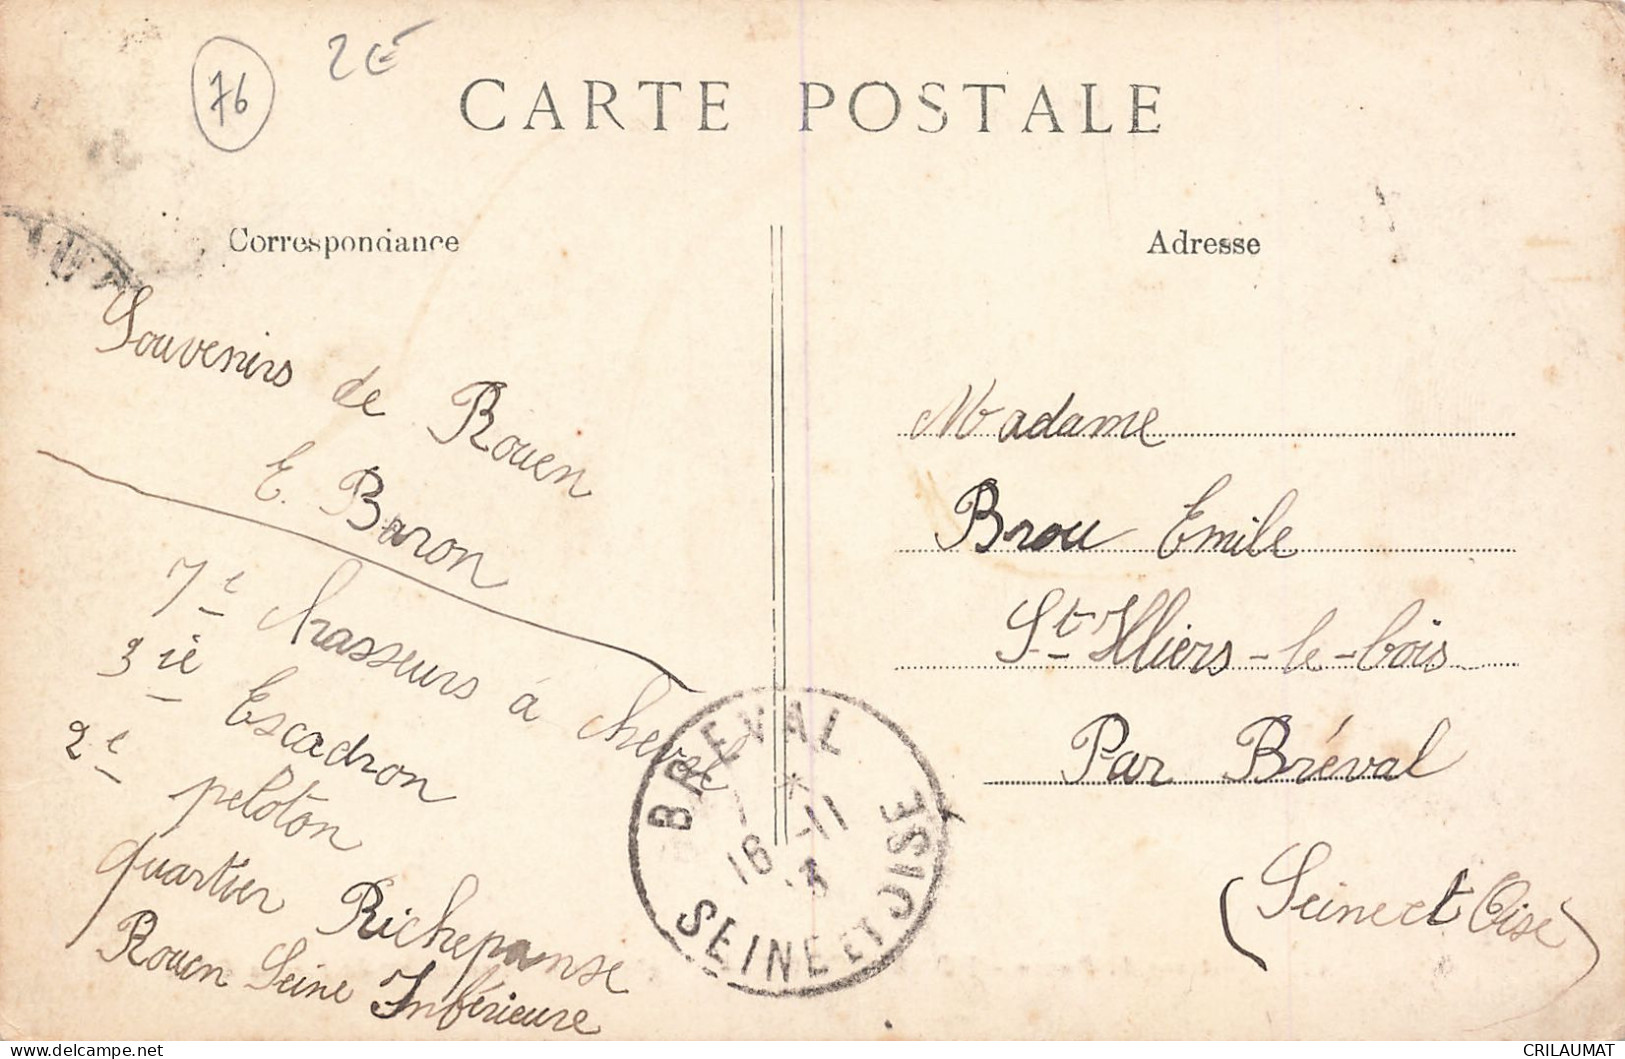 76
2€
CARTE POSTALE
Correspondance
Adresse
Souvenirs de Rouen
E. Baron
7e chasseurs à cheval
3ie Escadron
2e peloton
quartier Richepanse
Rouen Seine Inférieure
Madame
Brou Emile
St Illiers-le-bois
Par Bréval
(Seine et Oise)
BREVAL
16 -11
SEINE ET OISE
CRILAUMAT